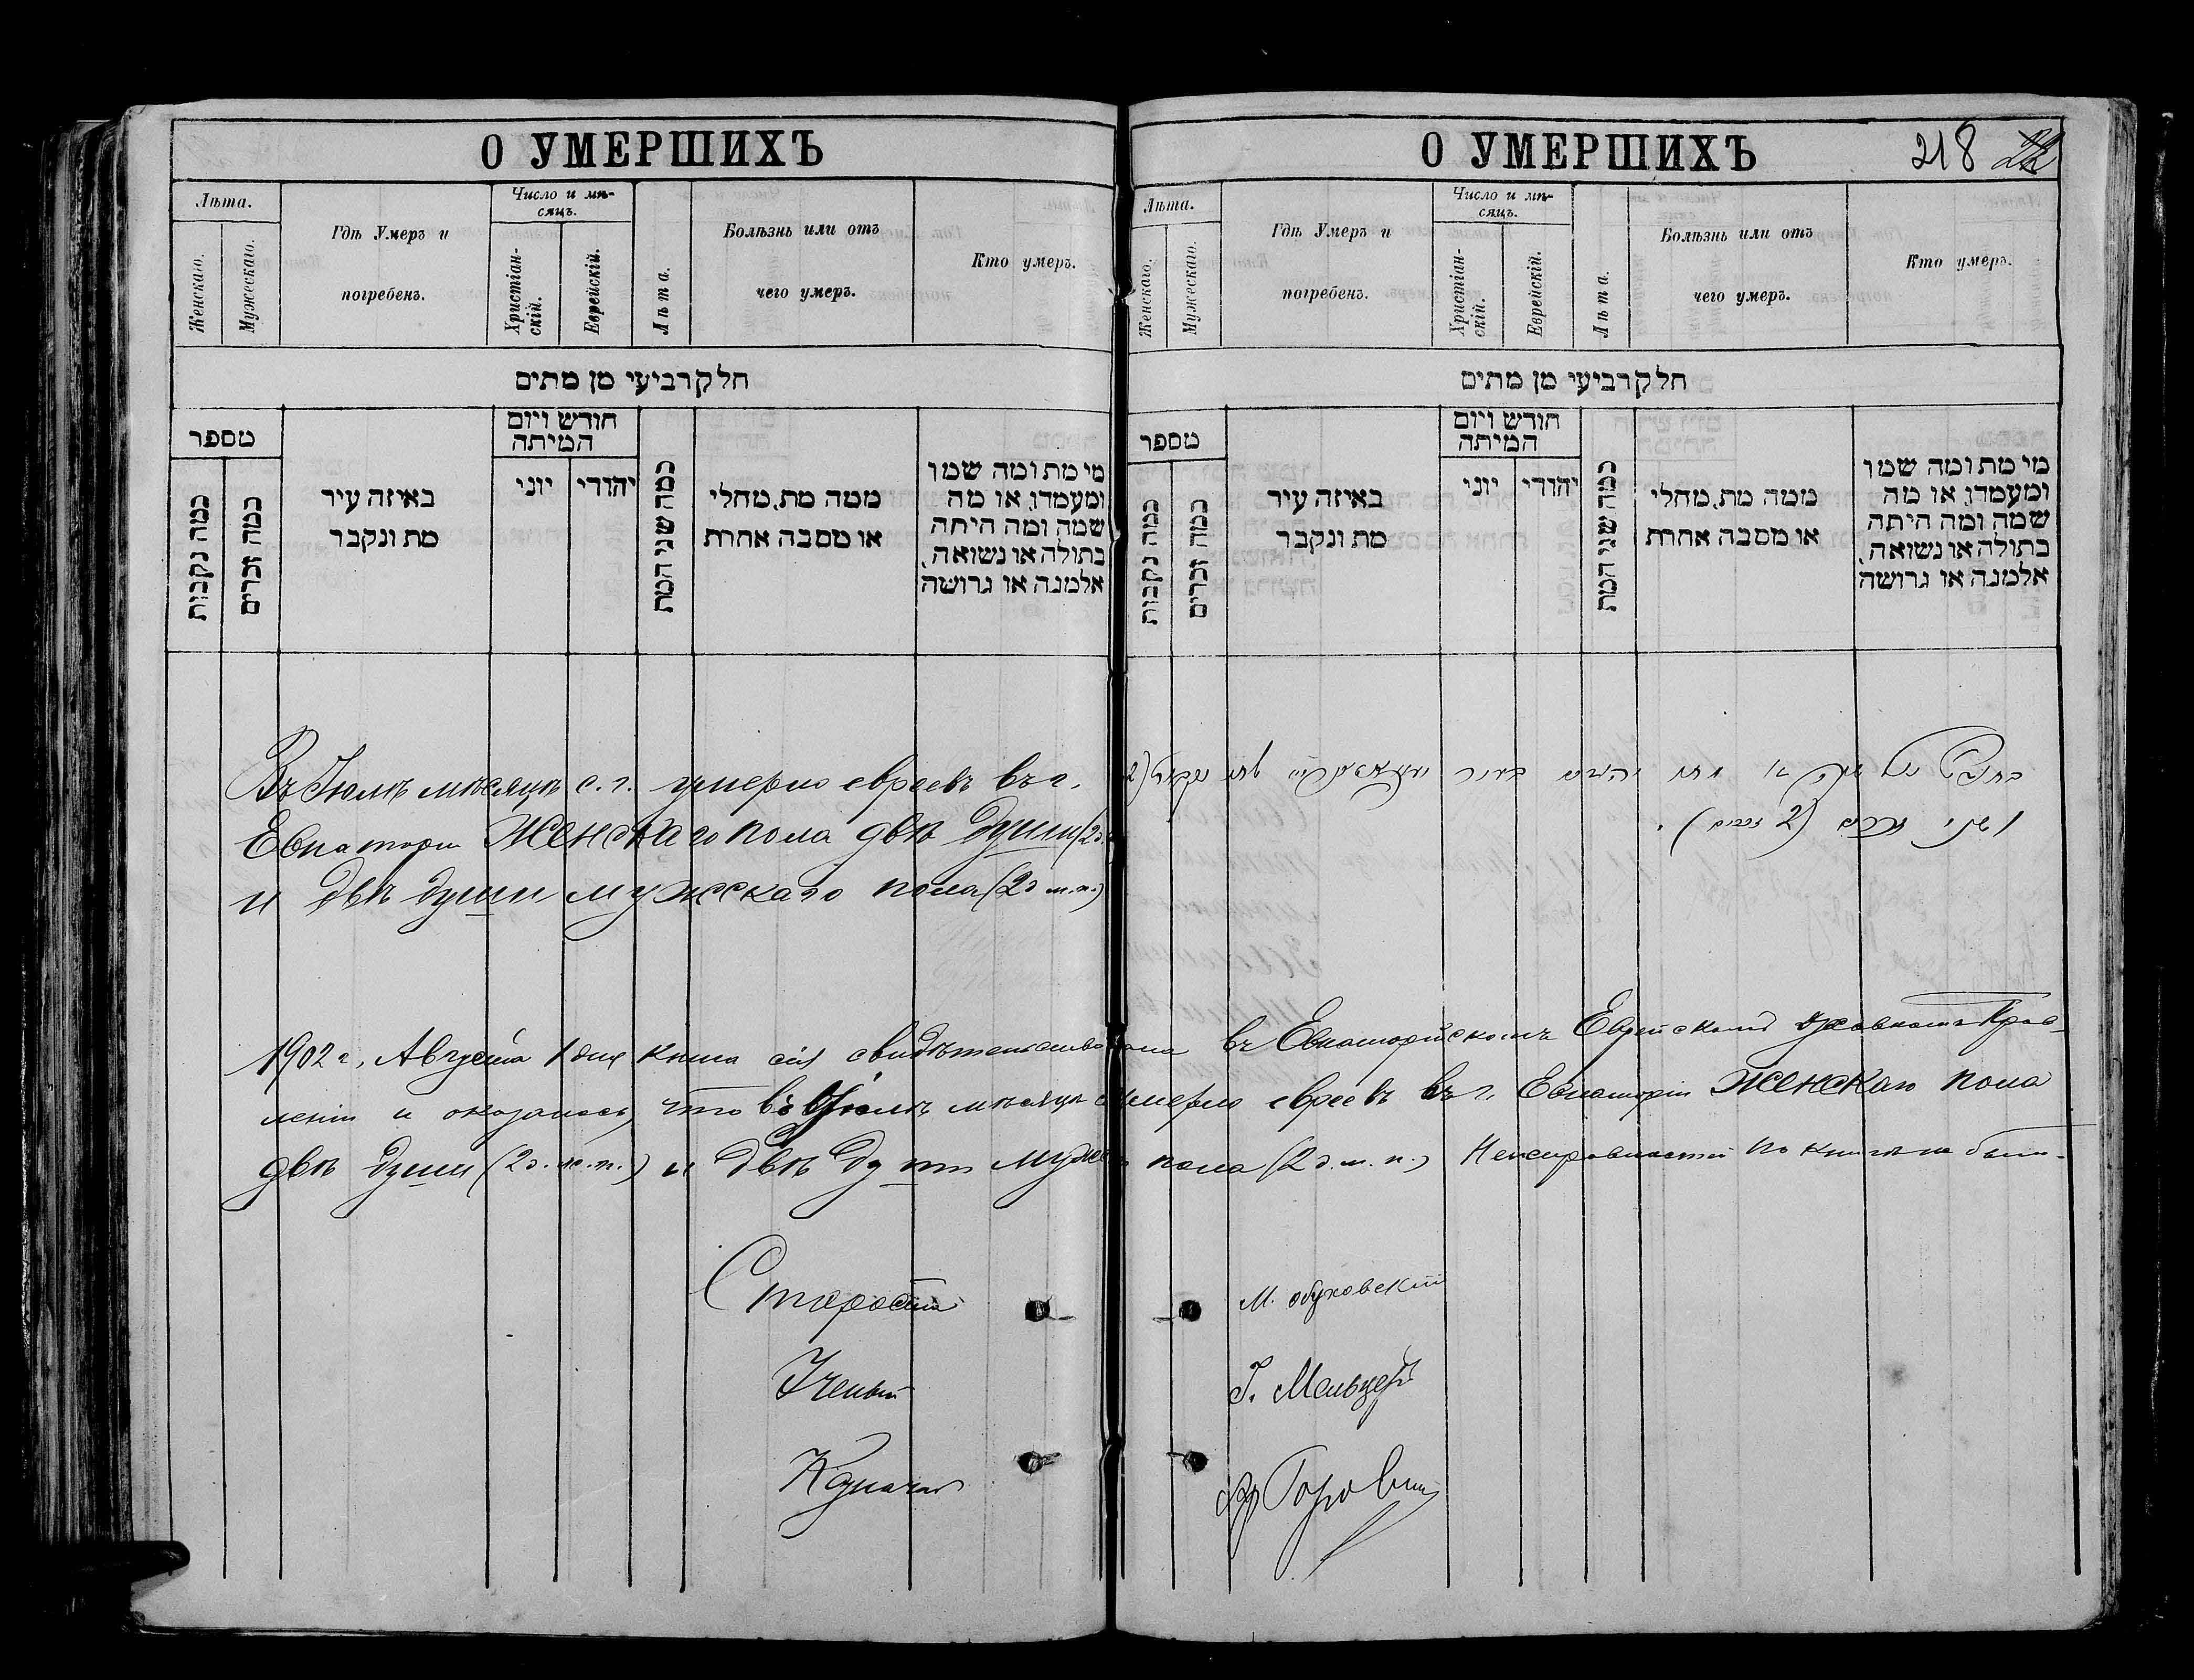 О УМЕРШИХЪ
Лѣта.
Женскаго.
Мужескаго.
Гдѣ Умеръ и
погребенъ.
Число и мѣ-
сяцъ.
Христіан-
скій.
Еврейскій.
Лѣта.
Болѣзнь или отъ
чего умеръ.
Кто умеръ.
חלק רביעי מן מתים
מספר
כמה נקבות
כמה זכרים
באיזה עיר
מת ונקבר
חודש ויום
המיתה
יוני
יהודי
כמה שני המת
ממה מת, מחלי
או מסבה אחרת
מי מת ומה שמו
ומעמדו, או מה
שמה ומה היתה
בתולה או נשואה,
אלמנה או גרושה
Въ Іюлѣ мѣсяцѣ с. г. умерло евреевъ въ г.
Евпатори Женскаго пола двѣ души (2 д.
и двѣ души мужескаго пола (2 д м. п.)
О УМЕРШИХЪ
218 22
Лѣта.
Женскаго.
Мужескаго.
Гдѣ Умеръ и
погребенъ.
Число и мѣ-
сяцъ.
Христіан-
скій.
Еврейскій.
Лѣта.
Болѣзнь или отъ
чего умеръ.
Кто умеръ.
חלק רביעי מן מתים
מספר
כמה נקבות
כמה זכרים
באיזה עיר
מת ונקבר
חודש ויום
המיתה
יוני
יהודי
כמה שני המת
ממה מת, מחלי
או מסבה אחרת
מי מת ומה שמו
ומעמדו, או מה
שמה ומה היתה
בתולה או נשואה,
אלמנה או גרושה
(2 זכרים).
1902 г. Августа 1 дня книга сія свидѣтельствована въ Евпаторійскомъ Еврейскомъ духовномъ Прав-
леніи и оказалось, что въ Іюлѣ мѣсяцѣ умерло евреевъ въ г. Евпаторіи Женскаго пола
двѣ души (2 д. ж. п.) и двѣ души мужес пола (2 д. м. п.) Неисправностей по книгѣ не было.
Староста М. обуховскій
Ученый Г. Мельцеръ
Казначей Горовиц